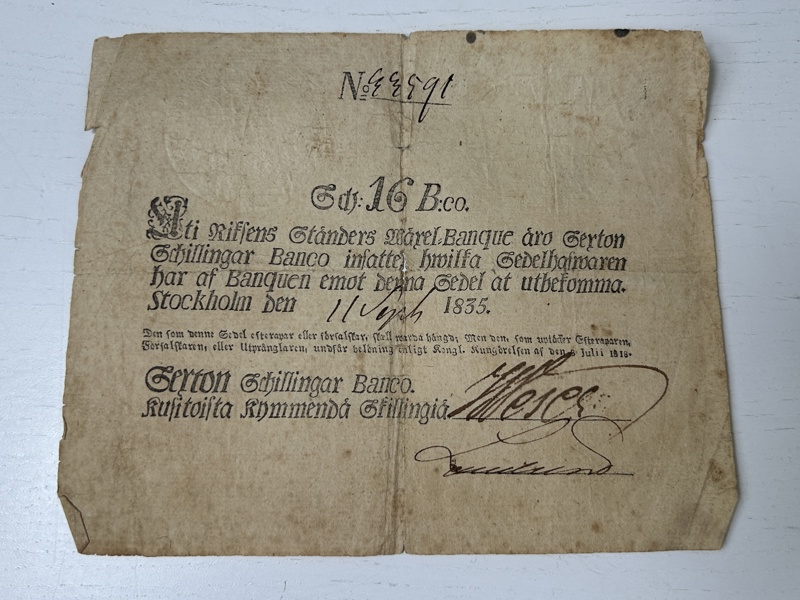 No 33591
Sch: 16 B:co.
Uti Riksens Ständers Wäxel-Banque äro Sexton
Schillingar Banco insatte, hwilka Sedelhafwaren
har af Banquen emot denna Sedel at utbekomma.
Stockholm den 11 Sept 1835.
Den som denne Sedel efterapar eller förfalskar, skall warda hängd; Men den, som uptäcker Efteraparen,
Förfalskaren, eller Utprånglaren, undfår belöning enligt Kongl. Kungörelsen af den 8 Julii 1818.
Sexton Schillingar Banco.
Kusitoista Kymmendä Skillingiä